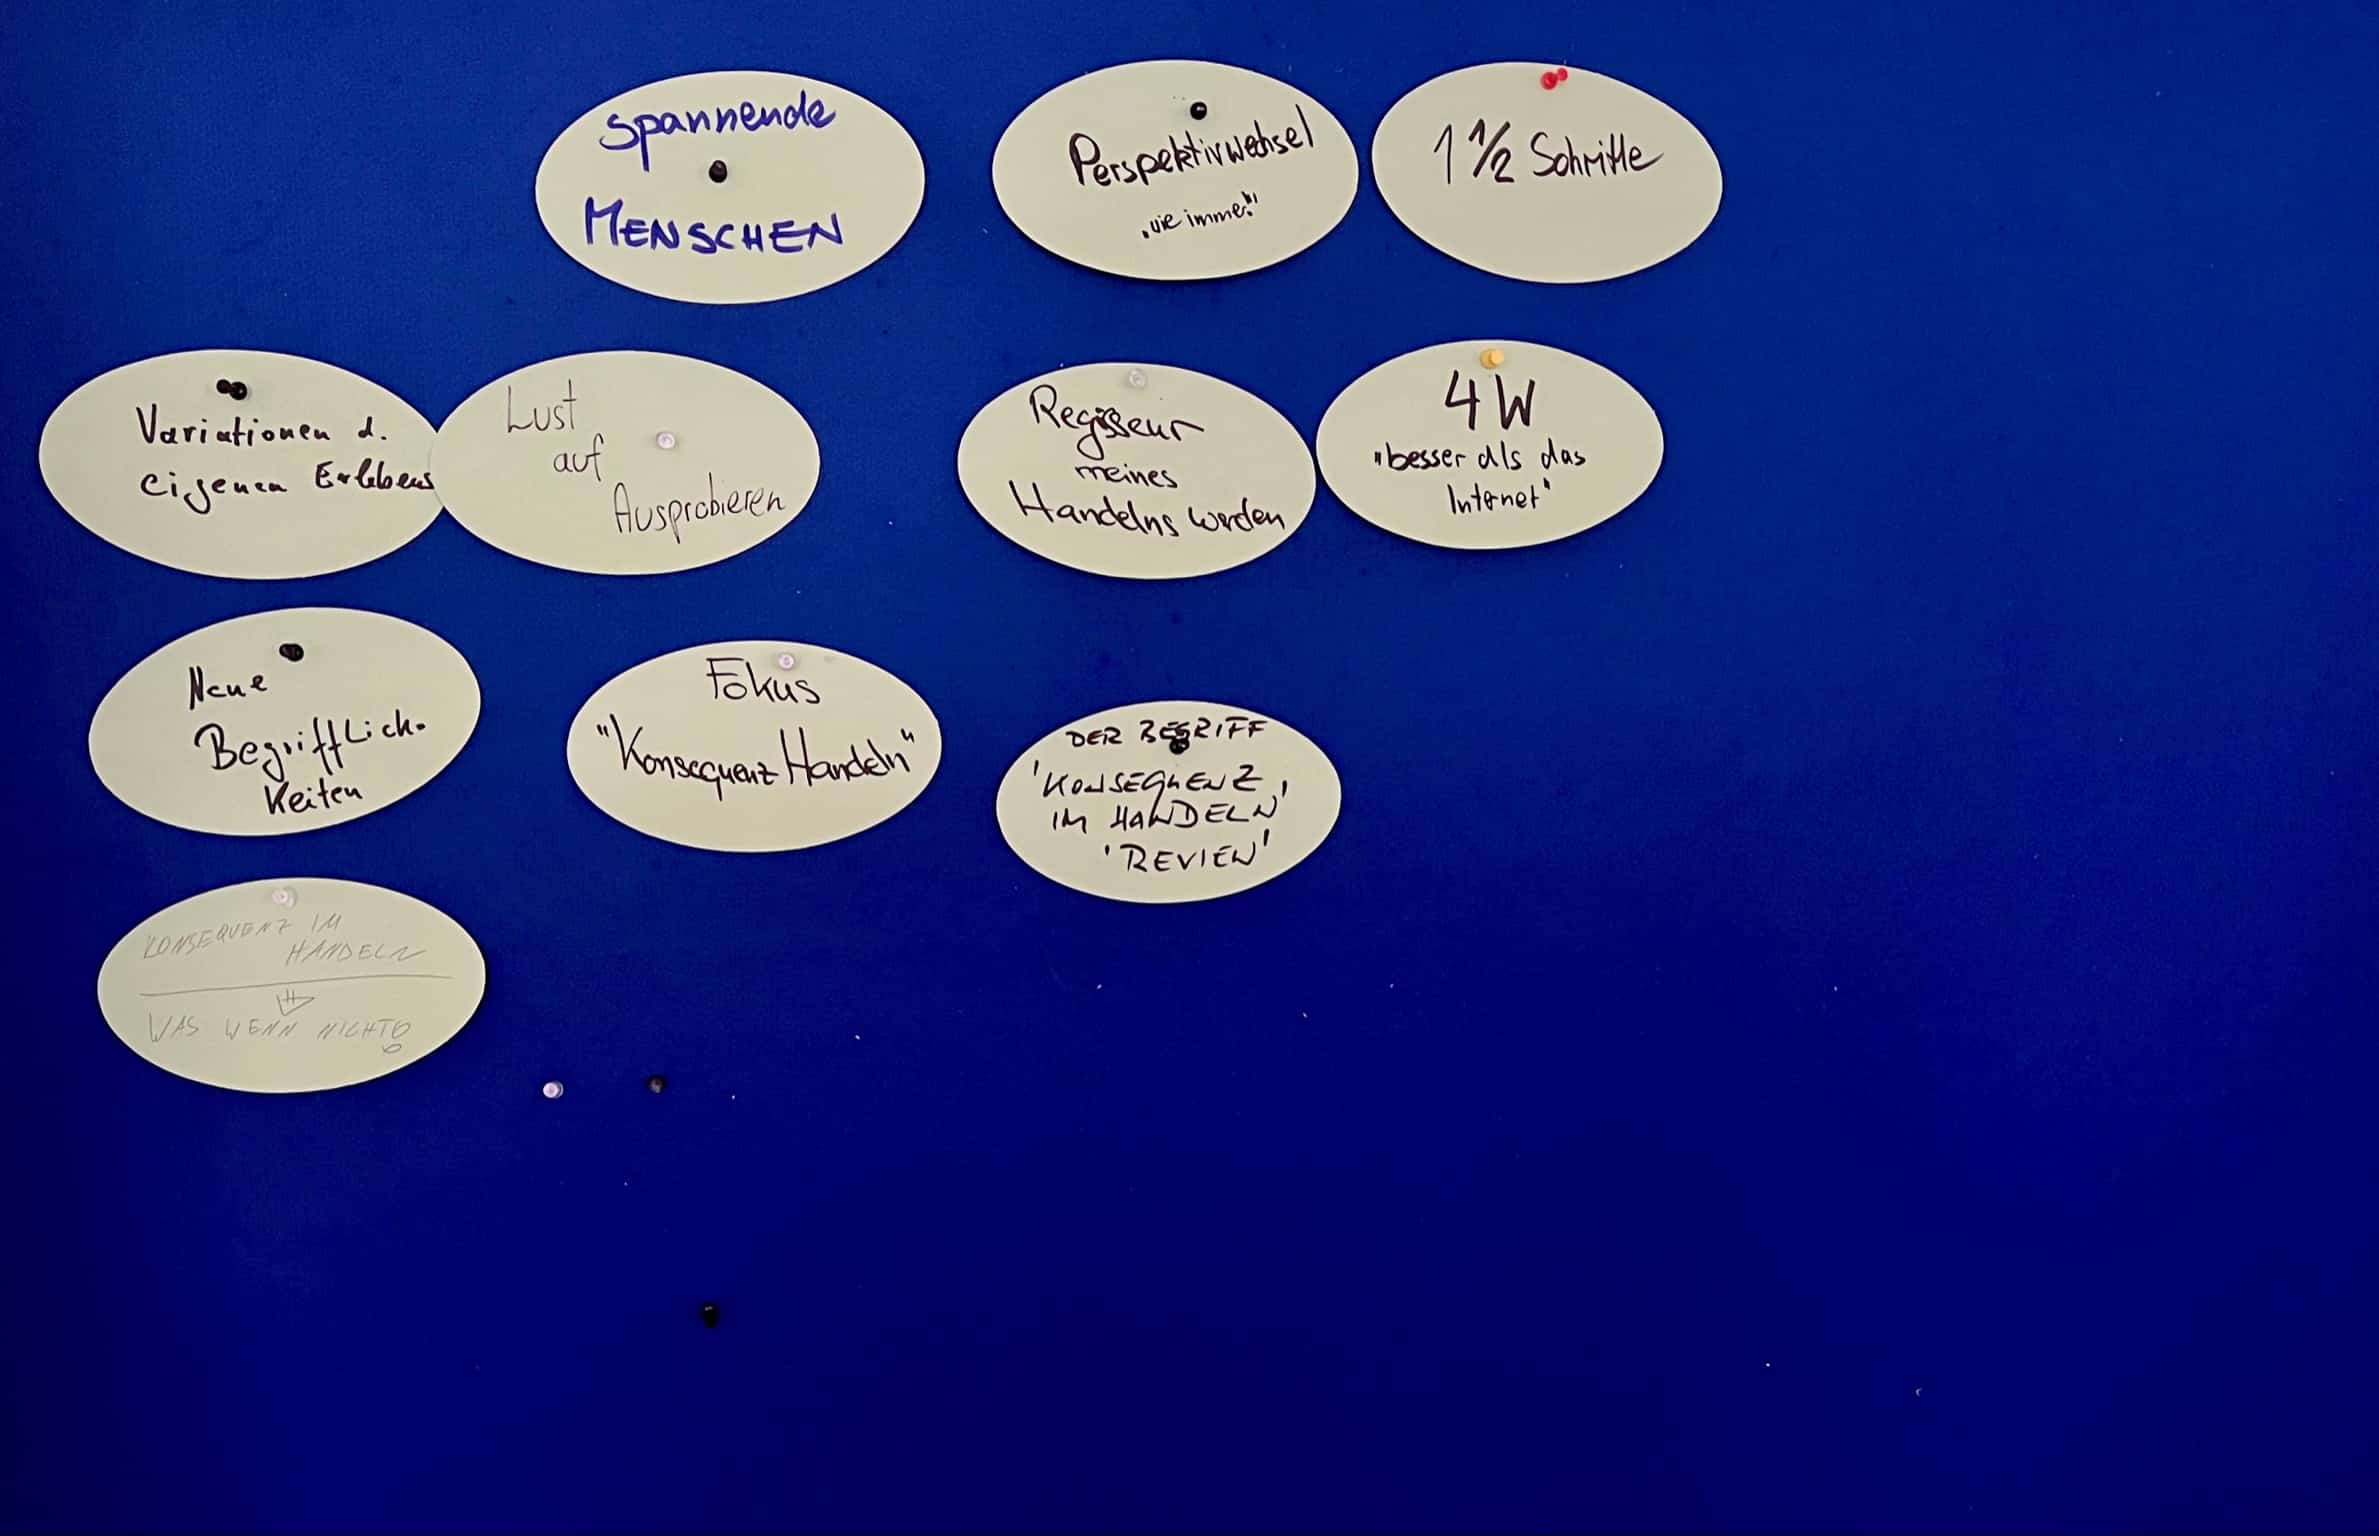 Spannende
MENSCHEN
Perspektivwechsel
„wie immer"
1 1/2 Schritte
Variationen d.
eigenen Erlebens
Lust
auf
Ausprobieren
Regisseur
meines
Handelns werden
4W
"besser als das
Internet"
Neue
Begrifflich-
Keiten
Fokus
"Konsequenz Handeln"
DER BEGRIFF
'KONSEQUENZ
IM HANDELN'
'REVIEW'
KONSEQUENZ IM
HANDELN
WAS WENN NICHT?